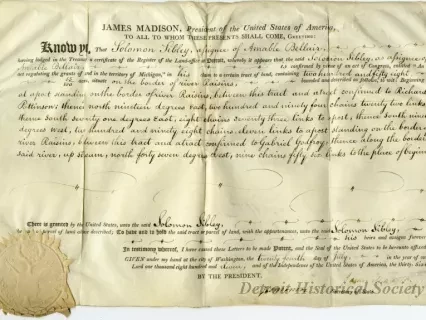 JAMES MADISON, President of the United States of America,
TO ALL TO WHOM THESE PRESENTS SHALL COME, GREETING:
Know ye, That Solomon Sibley, assignee of Amable Bellair,
having lodged in the Treasury a certificate of the Register of the Land-office at Detroit, whereby it appears that the said Solomon Sibley, as assignee of
Amable Bellair, confirmed by virtue of an act of Congress, entitled
regulating the grants of land in the territory of Michigan," in his claim to a certain tract of land, containing two hundred and fifty eight
on the border of river Raisins, bounded and described as follows, to wit: Beginning
at a post standing on the border of river Raisins, between this tract and a tract confirmed to Richard
Pattinson; thence north nineteen degrees east, two hundred and ninety four chains twenty two links
thence south seventy one degrees east, eight chains seventy three links to a post, thence south nineteen
degrees west, two hundred and ninety eight chains, eleven links to a post standing on the border
river Raisins, between this tract and a tract confirmed to Gabriel Godfroy; thence along the border
said river, up stream, north forty seven degrees west, nine chains fifty two links to the place of beginning
There is granted by the United States, unto the said Solomon Sibley,
parcel of land above described; To have and to hold the said tract or parcel of land, with the appurtenances, unto the said Solomon Sibley,
his heirs and assigns forever
In testimony whereof, I have caused these Letters to be made Patent, and the Seal of the United States to be hereunto affixed
GIVEN under my hand at the city of Washington, the twenty fourth day of July, in the year of
Lord one thousand eight hundred and eleven; and of the Independence of the United States of America, the thirty sixth
BY THE PRESIDENT,
Detroit Historical Society
Secretary of State.